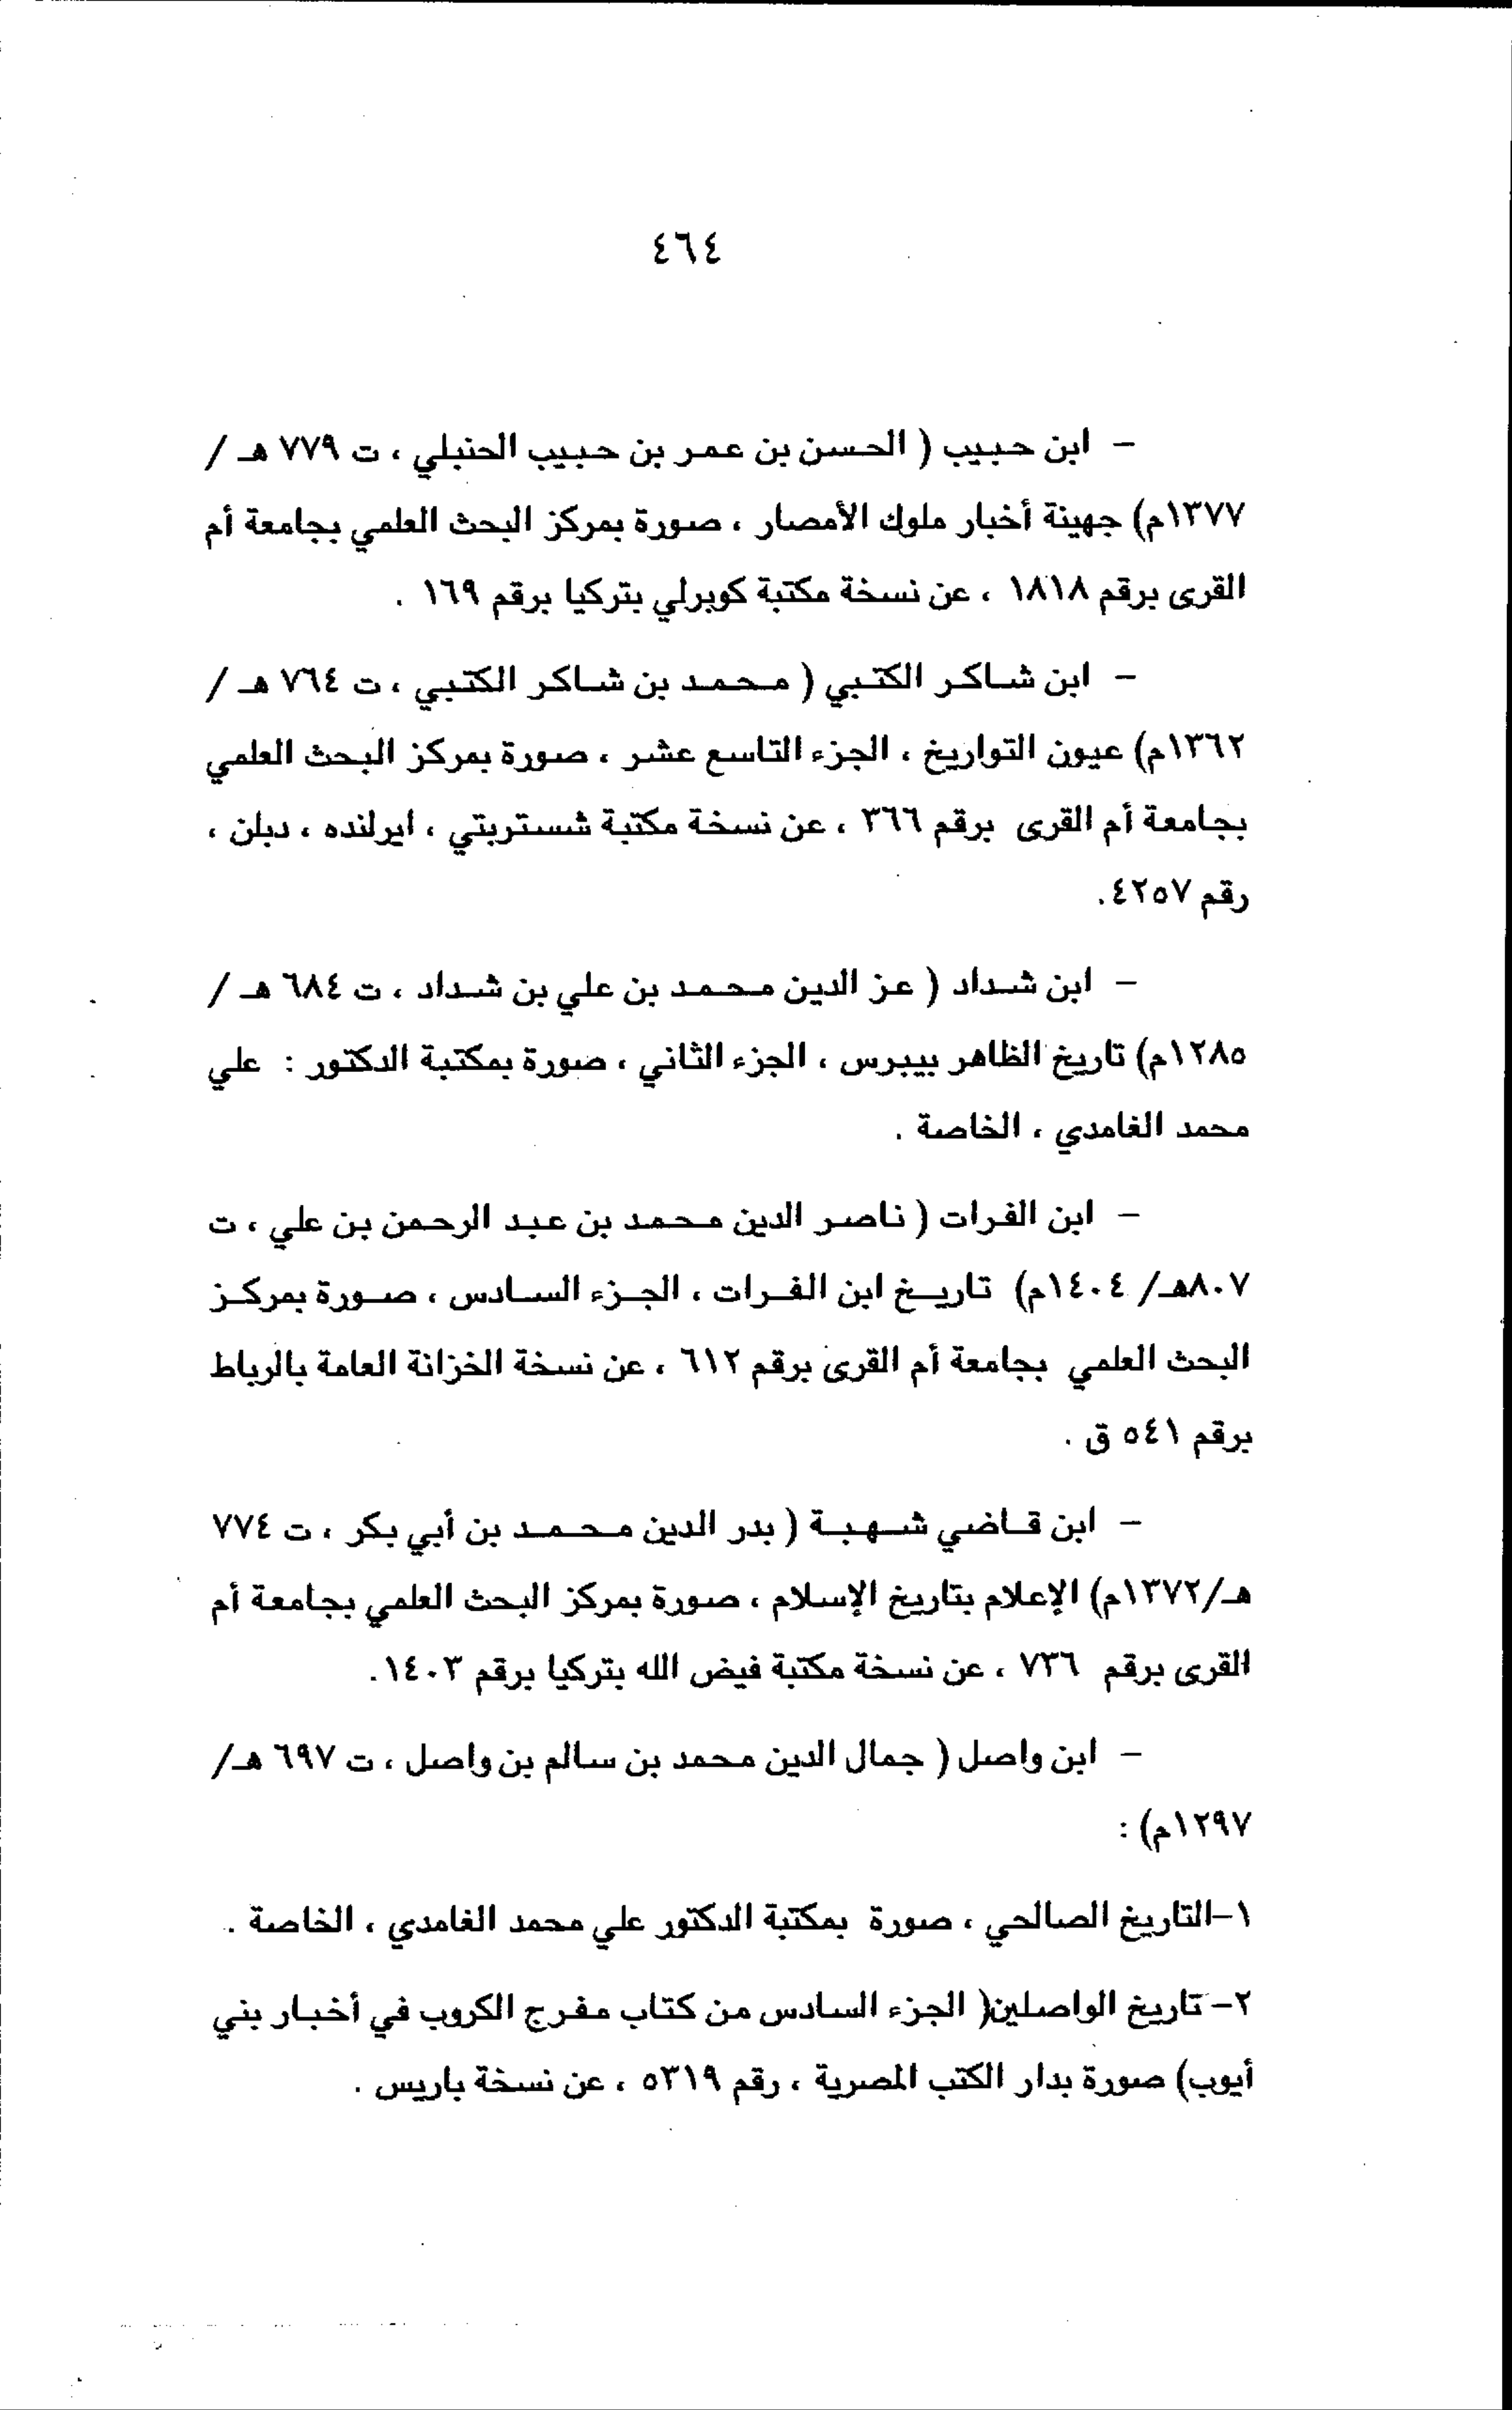 ٤٦٤
– ابن حبيب ( الحسن بن عمر بن حبيب الحنبلي ، ت ٧٧٩ هـ /
١٣٧٧م) جهينة أخبار ملوك الأمصار ، صورة بمركز البحث العلمي بجامعة أم
القرى برقم ١٨١٨ ، عن نسخة مكتبة كوبرلي بتركيا برقم ١٦٩ .
– ابن شاكر الكتبي ( محمد بن شاكر الكتبي ، ت ٧٦٤ هـ /
١٣٦٢م) عيون التواريخ ، الجزء التاسع عشر ، صورة بمركز البحث العلمي
بجامعة أم القرى برقم ٣٦٦ ، عن نسخة مكتبة شستربتي ، ايرلنده ، دبلن ،
رقم ٤٢٥٧.
– ابن شداد ( عز الدين محمد بن علي بن شداد ، ت ٦٨٤ هـ /
١٢٨٥م) تاريخ الظاهر بيبرس ، الجزء الثاني ، صورة بمكتبة الدكتور : علي
محمد الغامدي ، الخاصة .
– ابن الفرات ( ناصر الدين محمد بن عبد الرحمن بن علي ، ت
٨٠٧هـ/ ١٤٠٤م) تاريخ ابن الفرات ، الجزء السادس ، صورة بمركز
البحث العلمي بجامعة أم القرى برقم ٦١٢ ، عن نسخة الخزانة العامة بالرباط
برقم ٥٤١ ق .
– ابن قاضي شهبة ( بدر الدين محمد بن أبي بكر ، ت ٧٧٤
هـ/١٣٧٢م) الإعلام بتاريخ الإسلام ، صورة بمركز البحث العلمي بجامعة أم
القرى برقم ٧٣٦ ، عن نسخة مكتبة فيض الله بتركيا برقم ١٤٠٣.
– ابن واصل ( جمال الدين محمد بن سالم بن واصل ، ت ٦٩٧ هـ/
١٢٩٧م) :
١–التاريخ الصالحي ، صورة بمكتبة الدكتور علي محمد الغامدي ، الخاصة .
٢– تاريخ الواصلين( الجزء السادس من كتاب مفرج الكروب في أخبار بني
أيوب) صورة بدار الكتب المصرية ، رقم ٥٣١٩ ، عن نسخة باريس .